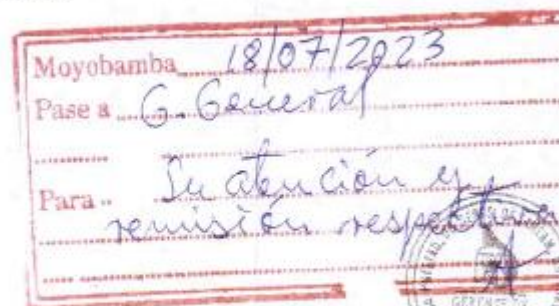 Moyobamba 18/07/2023
Pase a G. General
Para Su atención y
remisión respectiva